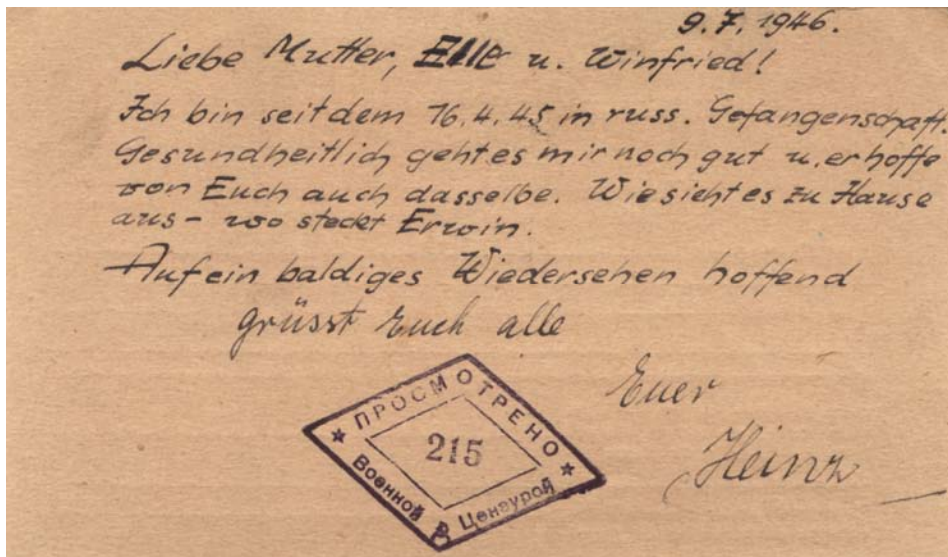 9.7.1946.
Liebe Mutter, Elle u. Winfried!
Ich bin seit dem 16.4.45 in russ. Gefangenschaft
Gesundheitlich geht es mir noch gut u. erhoffe
von Euch auch dasselbe. Wie sieht es zu Hause
aus - wo steckt Erwin.
Auf ein baldiges Wiedersehen hoffend
grüsst Euch alle
Euer
Heinz
ПРОСМОТРЕНО
215
Военной Цензурой